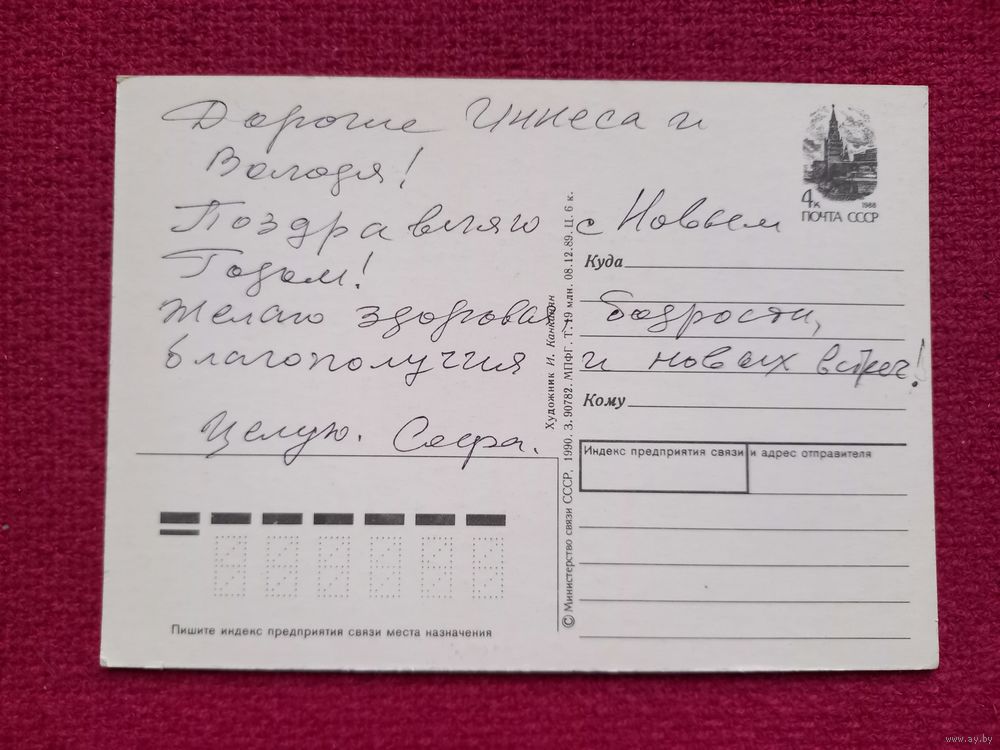 Дорогие Иннеса и
Володя!
Поздравляю с Новым
Годом!
Желаю здоровья, бодрости,
благополучия и новых встреч!
Целую. Сафра.
4к
1988
ПОЧТА СССР
Куда
Кому
Индекс предприятия связи и адрес отправителя
Художник И. Канкашян
© Министерство связи СССР, 1990. З. 90782. МПФГ. Т. 19 млн. 08.12.89. Ц. 6 к.
Пишите индекс предприятия связи места назначения
www.ay.by